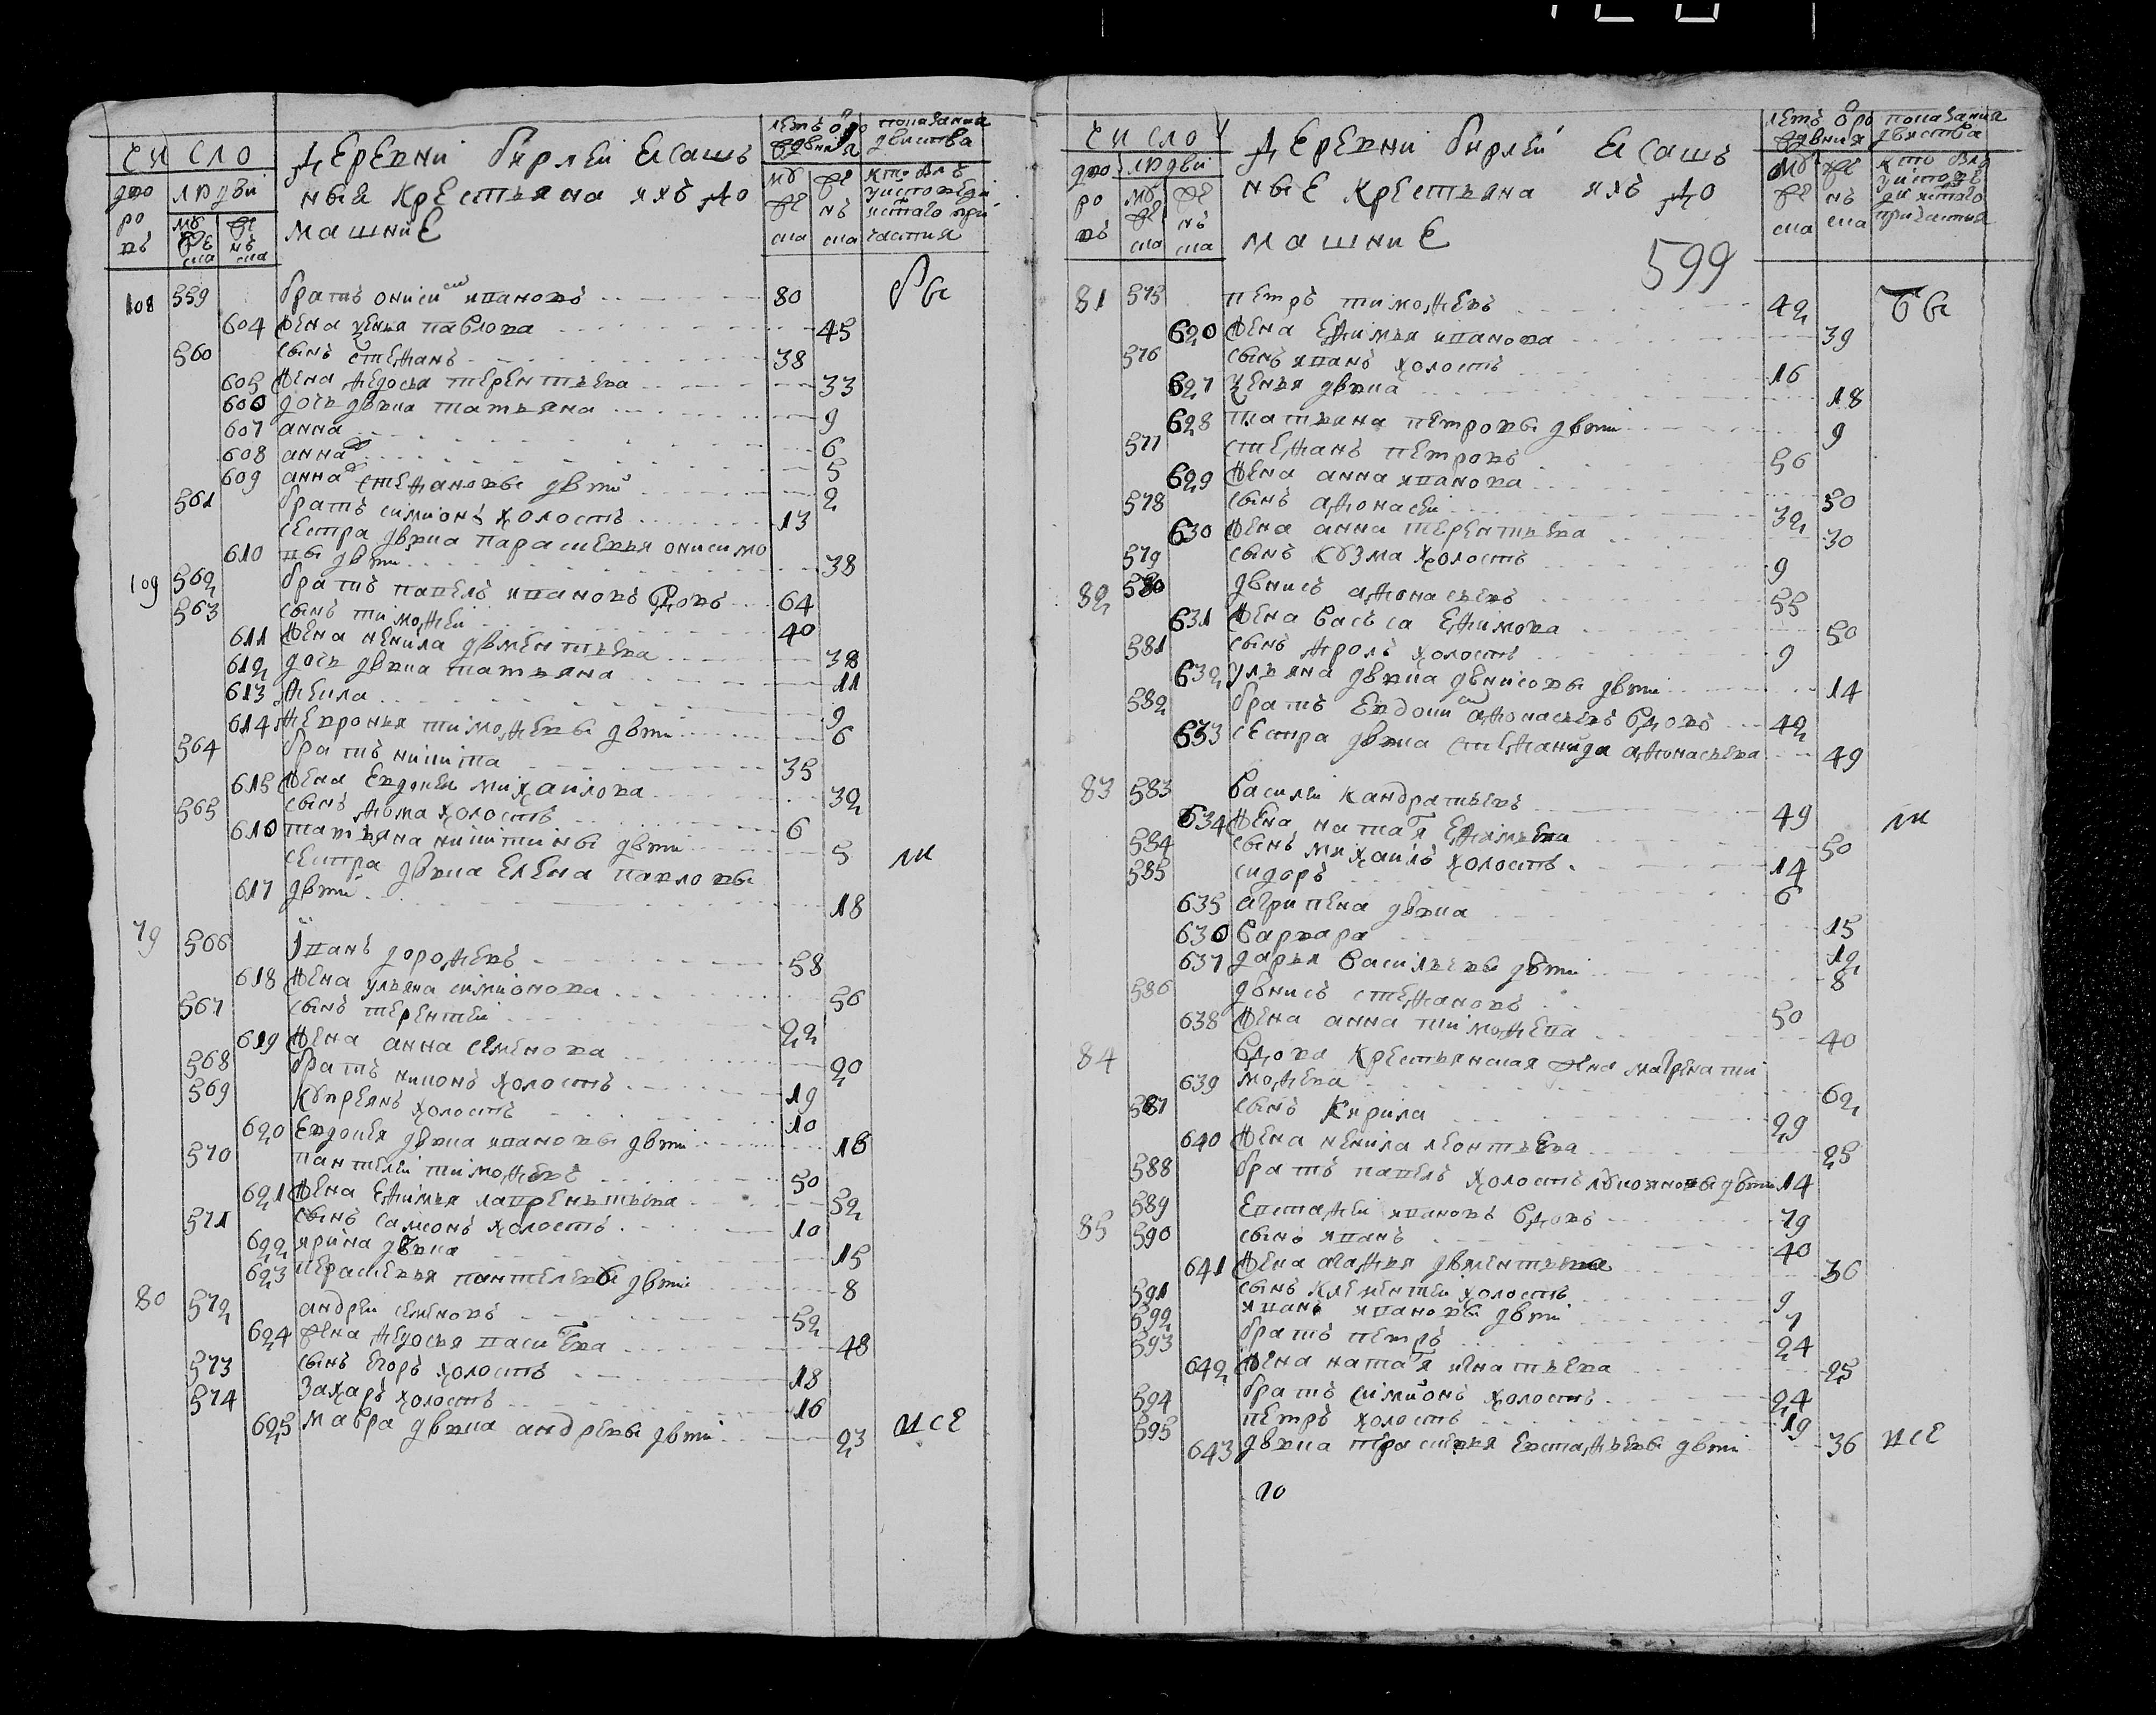 число
дво
ро
въ
людей
му
же
ска
же
нъ
ска
Деревни бирлей ясаш
ныя крестьяна ихъ до
машние
летъ о ро
ждения
му
же
ска
же
нъ
ска
показания
действа
кто былъ
у исповеди
и стаго при
частия
108 559 братъ онисимъ ивановъ 80 бы
604 жена ксенья павлова 45
560 сынъ степанъ 38
605 жена федосья терентьева 33
606 дочь девка татьяна 9
607 анна 6
608 анна 5
609 анна степановы дети 2
561 братъ симионъ холостъ 13
сестра девка парасковья онисимо
610 вы дети 38
109 562 братъ павелъ ивановъ вдовъ 64
563 сынъ тимофей 40
611 жена ненила дементьева 38
612 дочь девка татьяна 11
613 фекла 9
614 февронья тимофевы дети 6
564 братъ никита 35
615 жена евдокея михайлова 32
565 сынъ фома холостъ 6
616 татьяна никитины дети 5
сестра девка елена павловы
617 дети 18
79 566 иванъ дорофевъ 58
618 жена ульяна симионова 56
567 сынъ терентей 22
619 жена анна семенова 20
568 братъ никонъ холостъ 19
569 куприянъ холостъ 10
620 евдокея девка ивановы дети 16
570 пантелей тимофевъ 50
621 жена ефимья лаврентьева 52
571 сынъ самсонъ холостъ 10
622 ирина девка 15
623 парасковья пантелевы дети 8
80 572 андрей семеновъ 52
624 жена федосья васильева 48
573 сынъ егоръ холостъ 18
574 захаръ холостъ 16
625 мавра девка андревы дети 23 все
число
дво
ро
въ
людей
му
же
ска
же
нъ
ска
Деревни бирлей ясаш
ные крестьяна ихъ до
машние
летъ о ро
ждения
му
же
ска
же
нъ
ска
показания
действа
кто былъ
у испове
ди и стаго
причастия
599
81 575 петръ тимофевъ 42 бы
620 жена ефимья иванова 39
576 сынъ иванъ холостъ 16
627 ксенья девка 18
628 татьяна петровы дети 9
577 степанъ петровъ 56
629 жена анна иванова 50
578 сынъ афонасей 32
630 жена анна терентьева 30
579 сынъ кузма холостъ 9
82 580 денисъ афонасьевъ 55
631 жена васьса ефимова 50
581 сынъ фролъ холостъ 9
632 ульяна девка денисовы дети 14
582 братъ евдоким афонасьевъ вдовъ 42
633 сестра девка степанида афонасьева 49
83 583 василей кандратьевъ 49
634 жена наталя ефимьева 50
584 сынъ михайлъ холостъ 14
585 сидоръ 6
635 агрипена девка 15
636 варвара 12
637 дарья васильевы дети 8
586 денисъ степановъ 50
638 жена анна тимофева 40
84 вдова крестьянская жена матрена ти
639 мофева 62
587 сынъ кирила 29
640 жена ненила леонтьева 25
588 братъ павелъ холостъ лукояновы дети 14
589 евстафей ивановъ вдовъ 79
85 590 сынъ иванъ 40
641 жена агафья дементьева 36
591 сынъ клементей холостъ 9
592 иванъ ивановы дети 7
593 братъ петръ 24
642 жена наталя игнатьева 25
594 братъ симионъ холостъ 24
595 петръ холостъ 19
643 девка парасковья евстафьевы дети 36 все